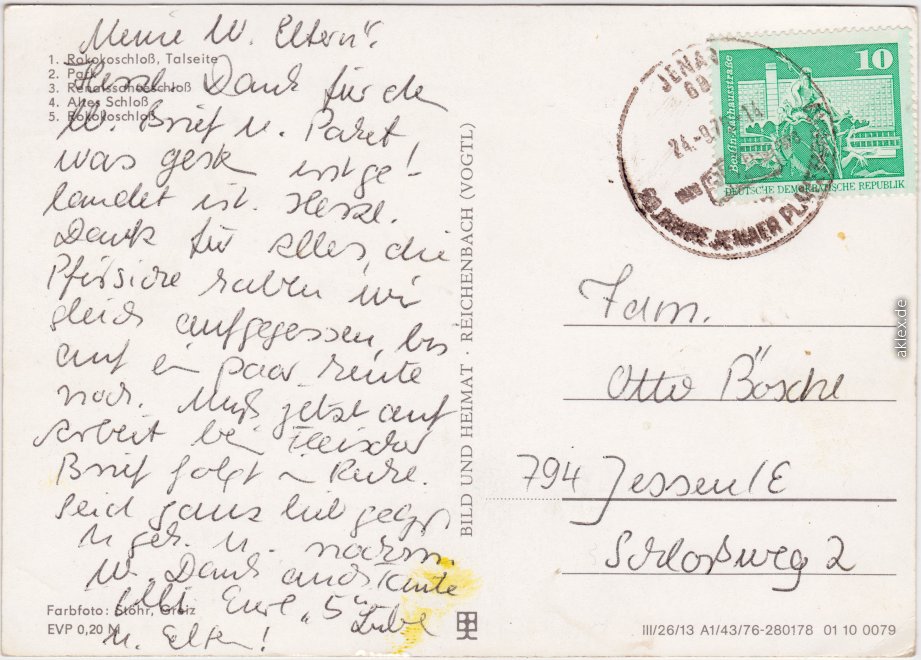 Meine lb. Eltern!
1. Rokokoschloß, Talseite
2. Park
3. Renaissanceschloß
4. Altes Schloß
5. Rokokoschloß
Herzl. Dank für den
lb. Brief u. Paket
was gest. ist ge-
landet ist. Herzl.
Dank für alles, die
Pfirsiche haben wir
gleich aufgegessen, bis
auf ein paar heute
noch. Muß jetzt auf
Arbeit bei Fleischer
Brief folgt in Ruhe.
Seid ganz lieb gegr.
u. gek. u. nochm.
lb. Dank auch Tante
Elli Eure "5"
Liebe
u. Eltern!
Farbfoto: Stöhr, Greiz
EVP 0,20 M
BILD UND HEIMAT · REICHENBACH (VOGTL)
JENA
69
24.-9.7 14
JAHRE JENAER
10
Berlin, Rathausstraße
DEUTSCHE DEMOKRATISCHE REPUBLIK
Fam.
Otto Bösche
794 Jessen/E
Schloßweg 2
III/26/13 A1/43/76-280178 01 10 0079
aklex.de